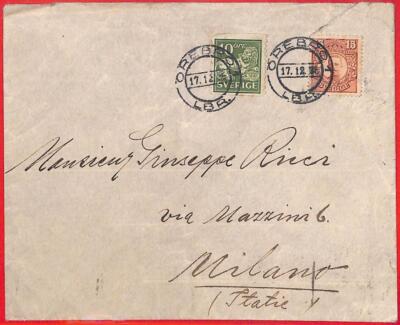 10 ÖRE
SVERIGE
15
ÖREBRO 1
17.12.
LBR.
ÖREBRO 1
17.12.
LBR.
Monsieur Giuseppe Ricci
via Mazzini 6.
Milano
(Italie)